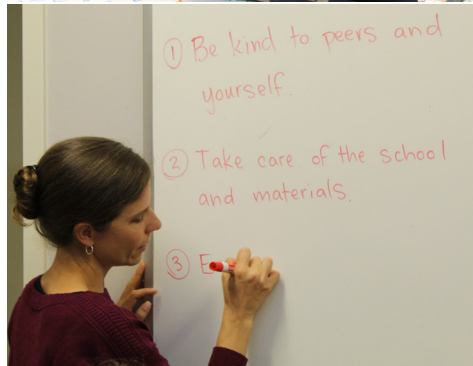 ① Be kind to peers and
yourself.
② Take care of the school
and materials.
③ E